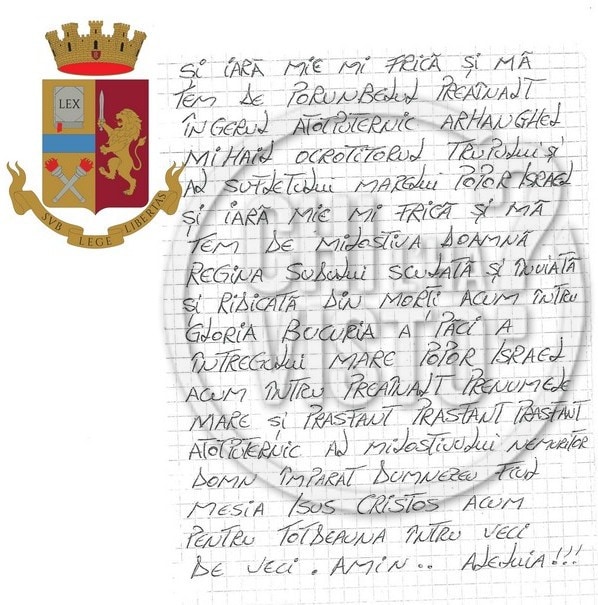 LEX
SVB LEGE LIBERTAS
ȘI IARĂ MIE MI FRICĂ ȘI MĂ
TEM DE PORUNBELUL PREAÎNALT
ÎNGERUL ATOTPUTERNIC ARHANGHEL
MIHAIL OCROTITORUL TRUPULUI ȘI
AL SUFLETULUI MARELUI POPOR ISRAEL
ȘI IARĂ MIE MI FRICĂ ȘI MĂ
TEM DE MILOSTIVA DOAMNĂ
REGINA SULULUI SCULATĂ ȘI ÎNVIATĂ
ȘI RIDICATĂ DIN MORȚI ACUM ÎNTRU
GLORIA BUCURIA A PĂCI A
ÎNTREGULUI MARE POPOR ISRAEL
ACUM ÎNTRU PREAÎNALT PRENUMELE
MARE ȘI PRASFANT PRASFANT PRASFANT
ATOTPUTERNIC AL MILOSTIVULUI NEMURITOR
DOMN ÎMPARAT DUMNEZEU FIUL
MESIA ISUS CRISTOS ACUM
PENTRU TOTDEAUNA ÎNTRU VECI
DE VECI . AMIN .. ALELUIA!!!
CHI L'HA
VISTO?